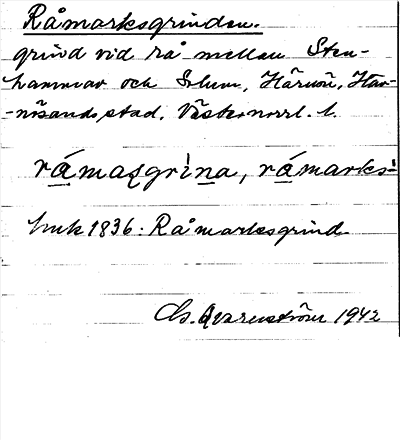 Råmarksgrinden.
grind vid rå mellan Sten-
hammar och Solum, Härnön, Här-
-nösands stad. Västernorrl. l.
råmaʂgrina, råmarks-
hmk 1836: Råmarksgrind
Qvarnström 1942